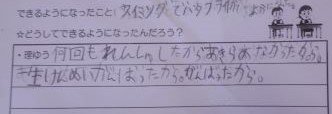 できるようになったこと：スイミングでバタフライが
☆どうしてできるようになったんだろう？
・理ゆう 何回もれんしゅうしたからあきらめなかったから。
一生けんめいがんばったから。がんばったから。